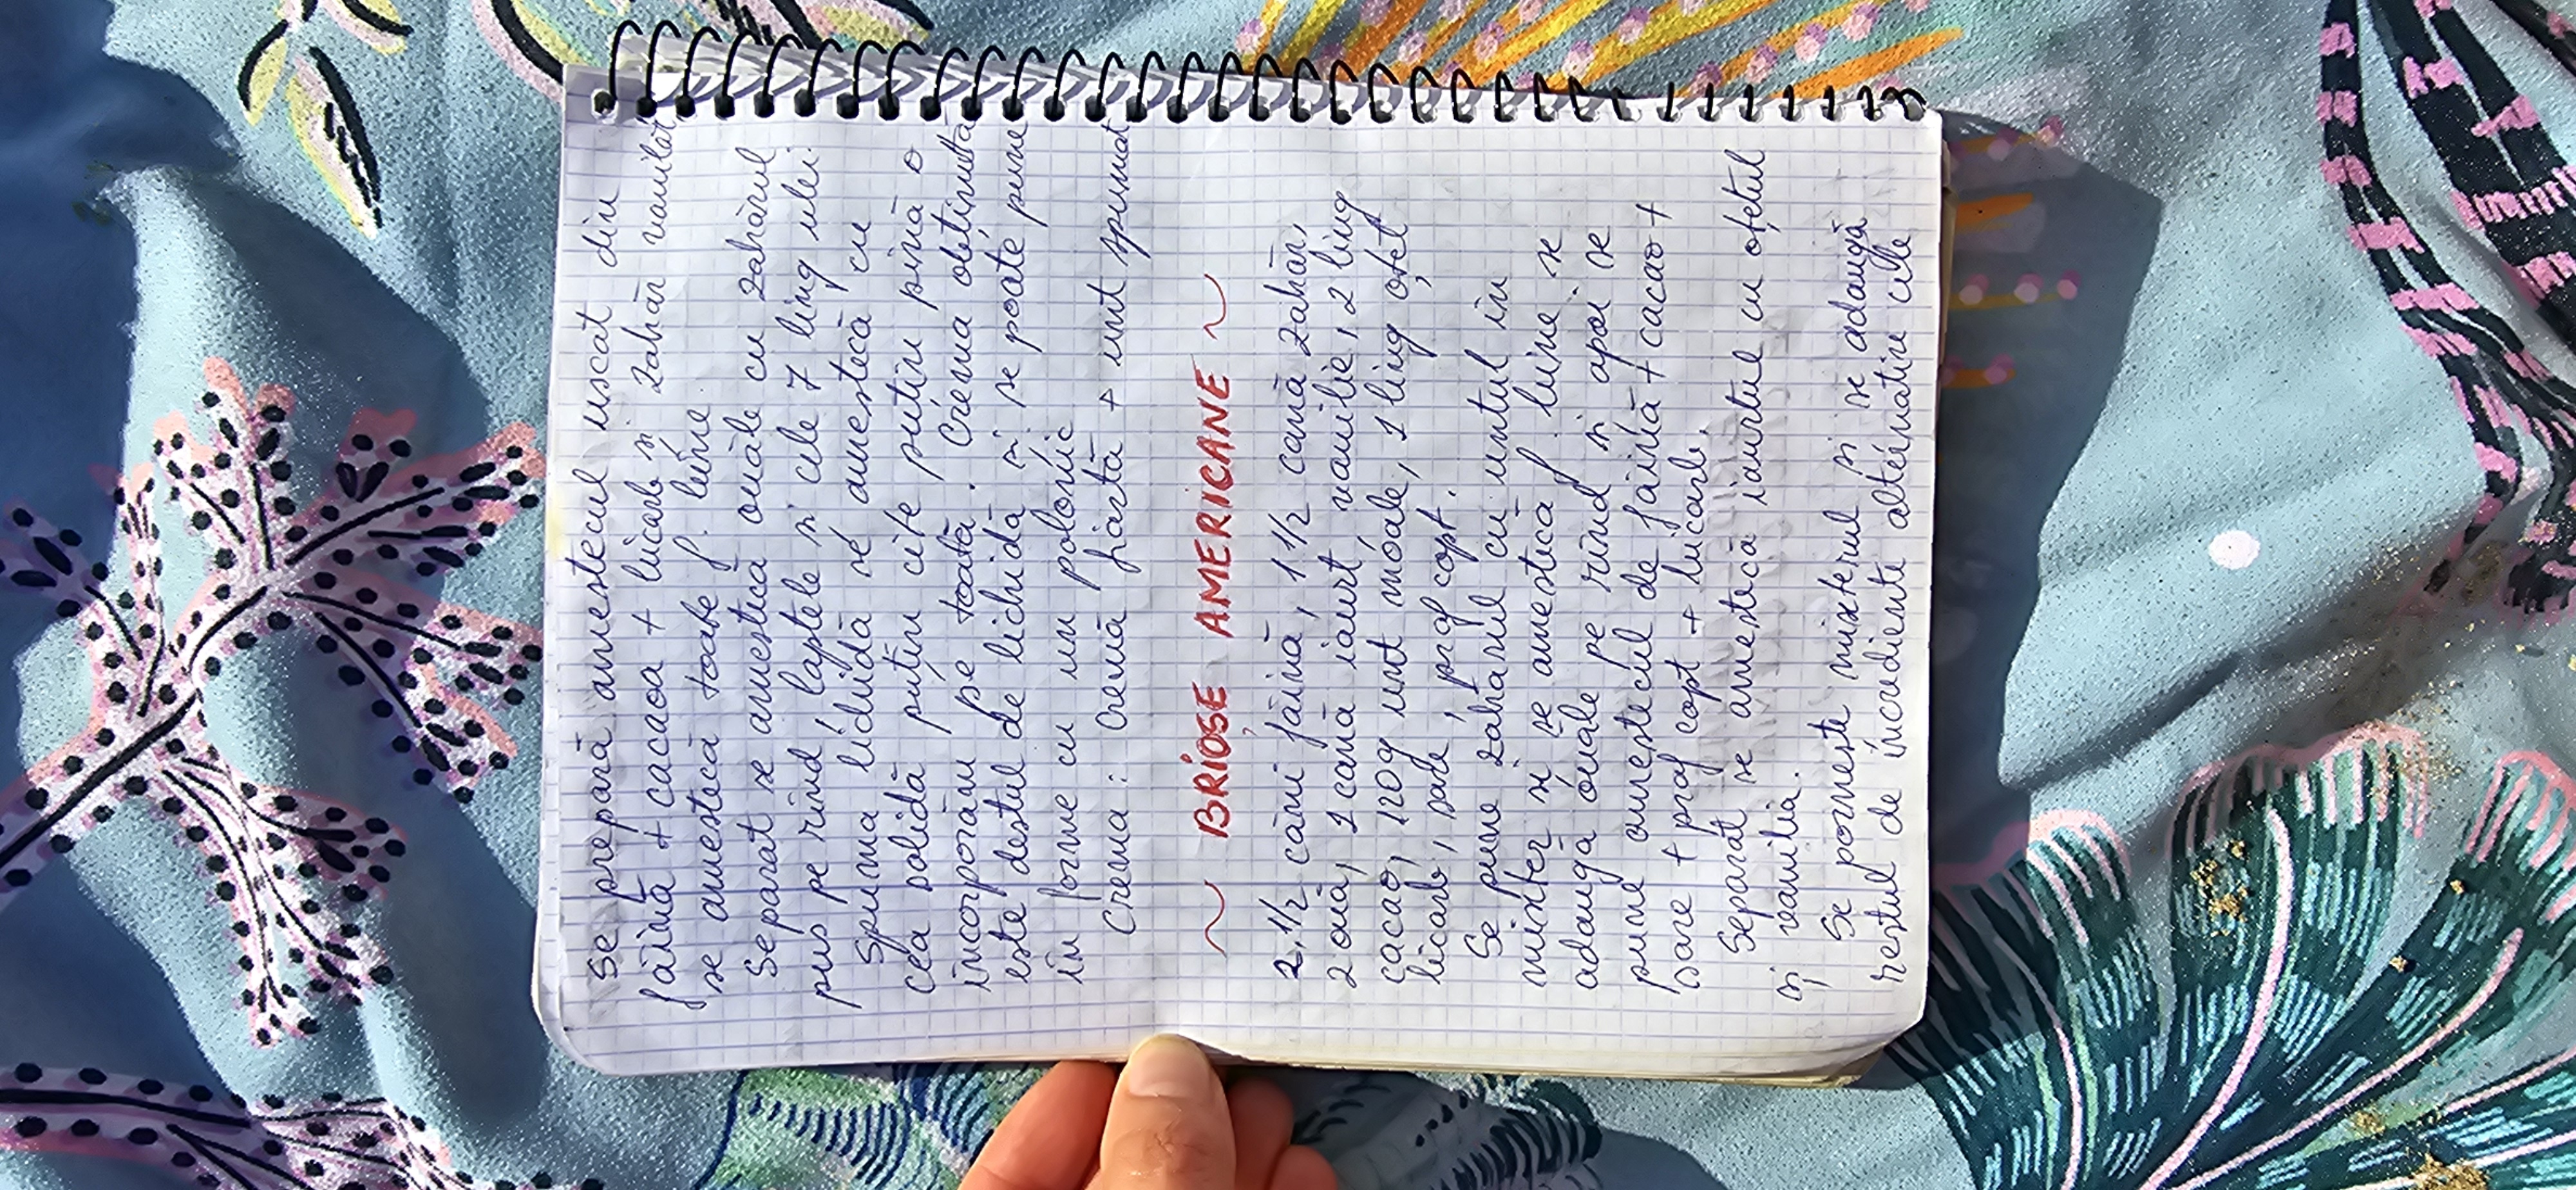 Se prepară amestecul uscat din
făină + cacaoa + bicarb și zahăr vanilat
se amestecă toate f. bine.
Separat se amestică ouăle cu zahărul
pus pe rînd, laptele și cele 7 ling ulei.
Spuma lichidă se amestecă cu
cea solidă puțin cîte puțin pînă o
incorporăm pe toată. Crema obținută
este destul de lichidă și se poate pune
în forme cu un polonic
Crema: Cremă fiartă + unt spumat
~ BRIOȘE AMERICANE ~
2.1/2 căni făină, 1 1/2 cană zahăr,
2 ouă, 1 cană iaurt, vanilie, 2 ling
cacao, 120g unt moale, 1 ling oțet
bicarb, sare, praf copt.
Se pune zahărul cu untul în
mixter și se amestică f. bine se
adaugă ouăle pe rînd și apoi se
pune amestecul de făină + cacao +
sare + praf copt + bicarb.
Separat se amestecă iaurtul cu oțetul
și vanilia.
Se pornește mixterul și se adaugă
restul de incrediente alternativ cele